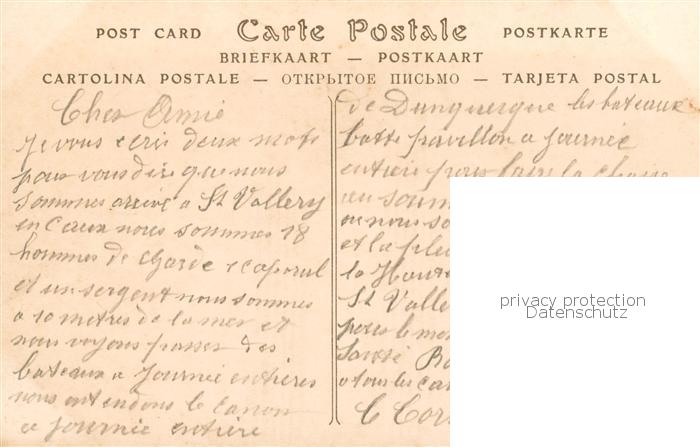 POST CARD Carte Postale POSTKARTE
BRIEFKAART — POSTKAART
CARTOLINA POSTALE — ОТКРЫТОЕ ПИСЬМО — TARJETA POSTAL
Cher Amie
je vous ecris deux mots
pour vous dire que nous
sommes arrivé a St Vallery
en Caux nous sommes 18
hommes de garde 1 caporal
et un sergent nous sommes
a 10 metres de la mer et
nous voyons passer des
bateaux a journée entières
nous entendons le canon
a journée entière
de Dunquerque les bateaux
batte pavillon a journée
entière pour faire la chasse
nous
et la plu
la Haute
St Valler
pour le mo
Santé
a tous les ca
privacy protection
Datenschutz